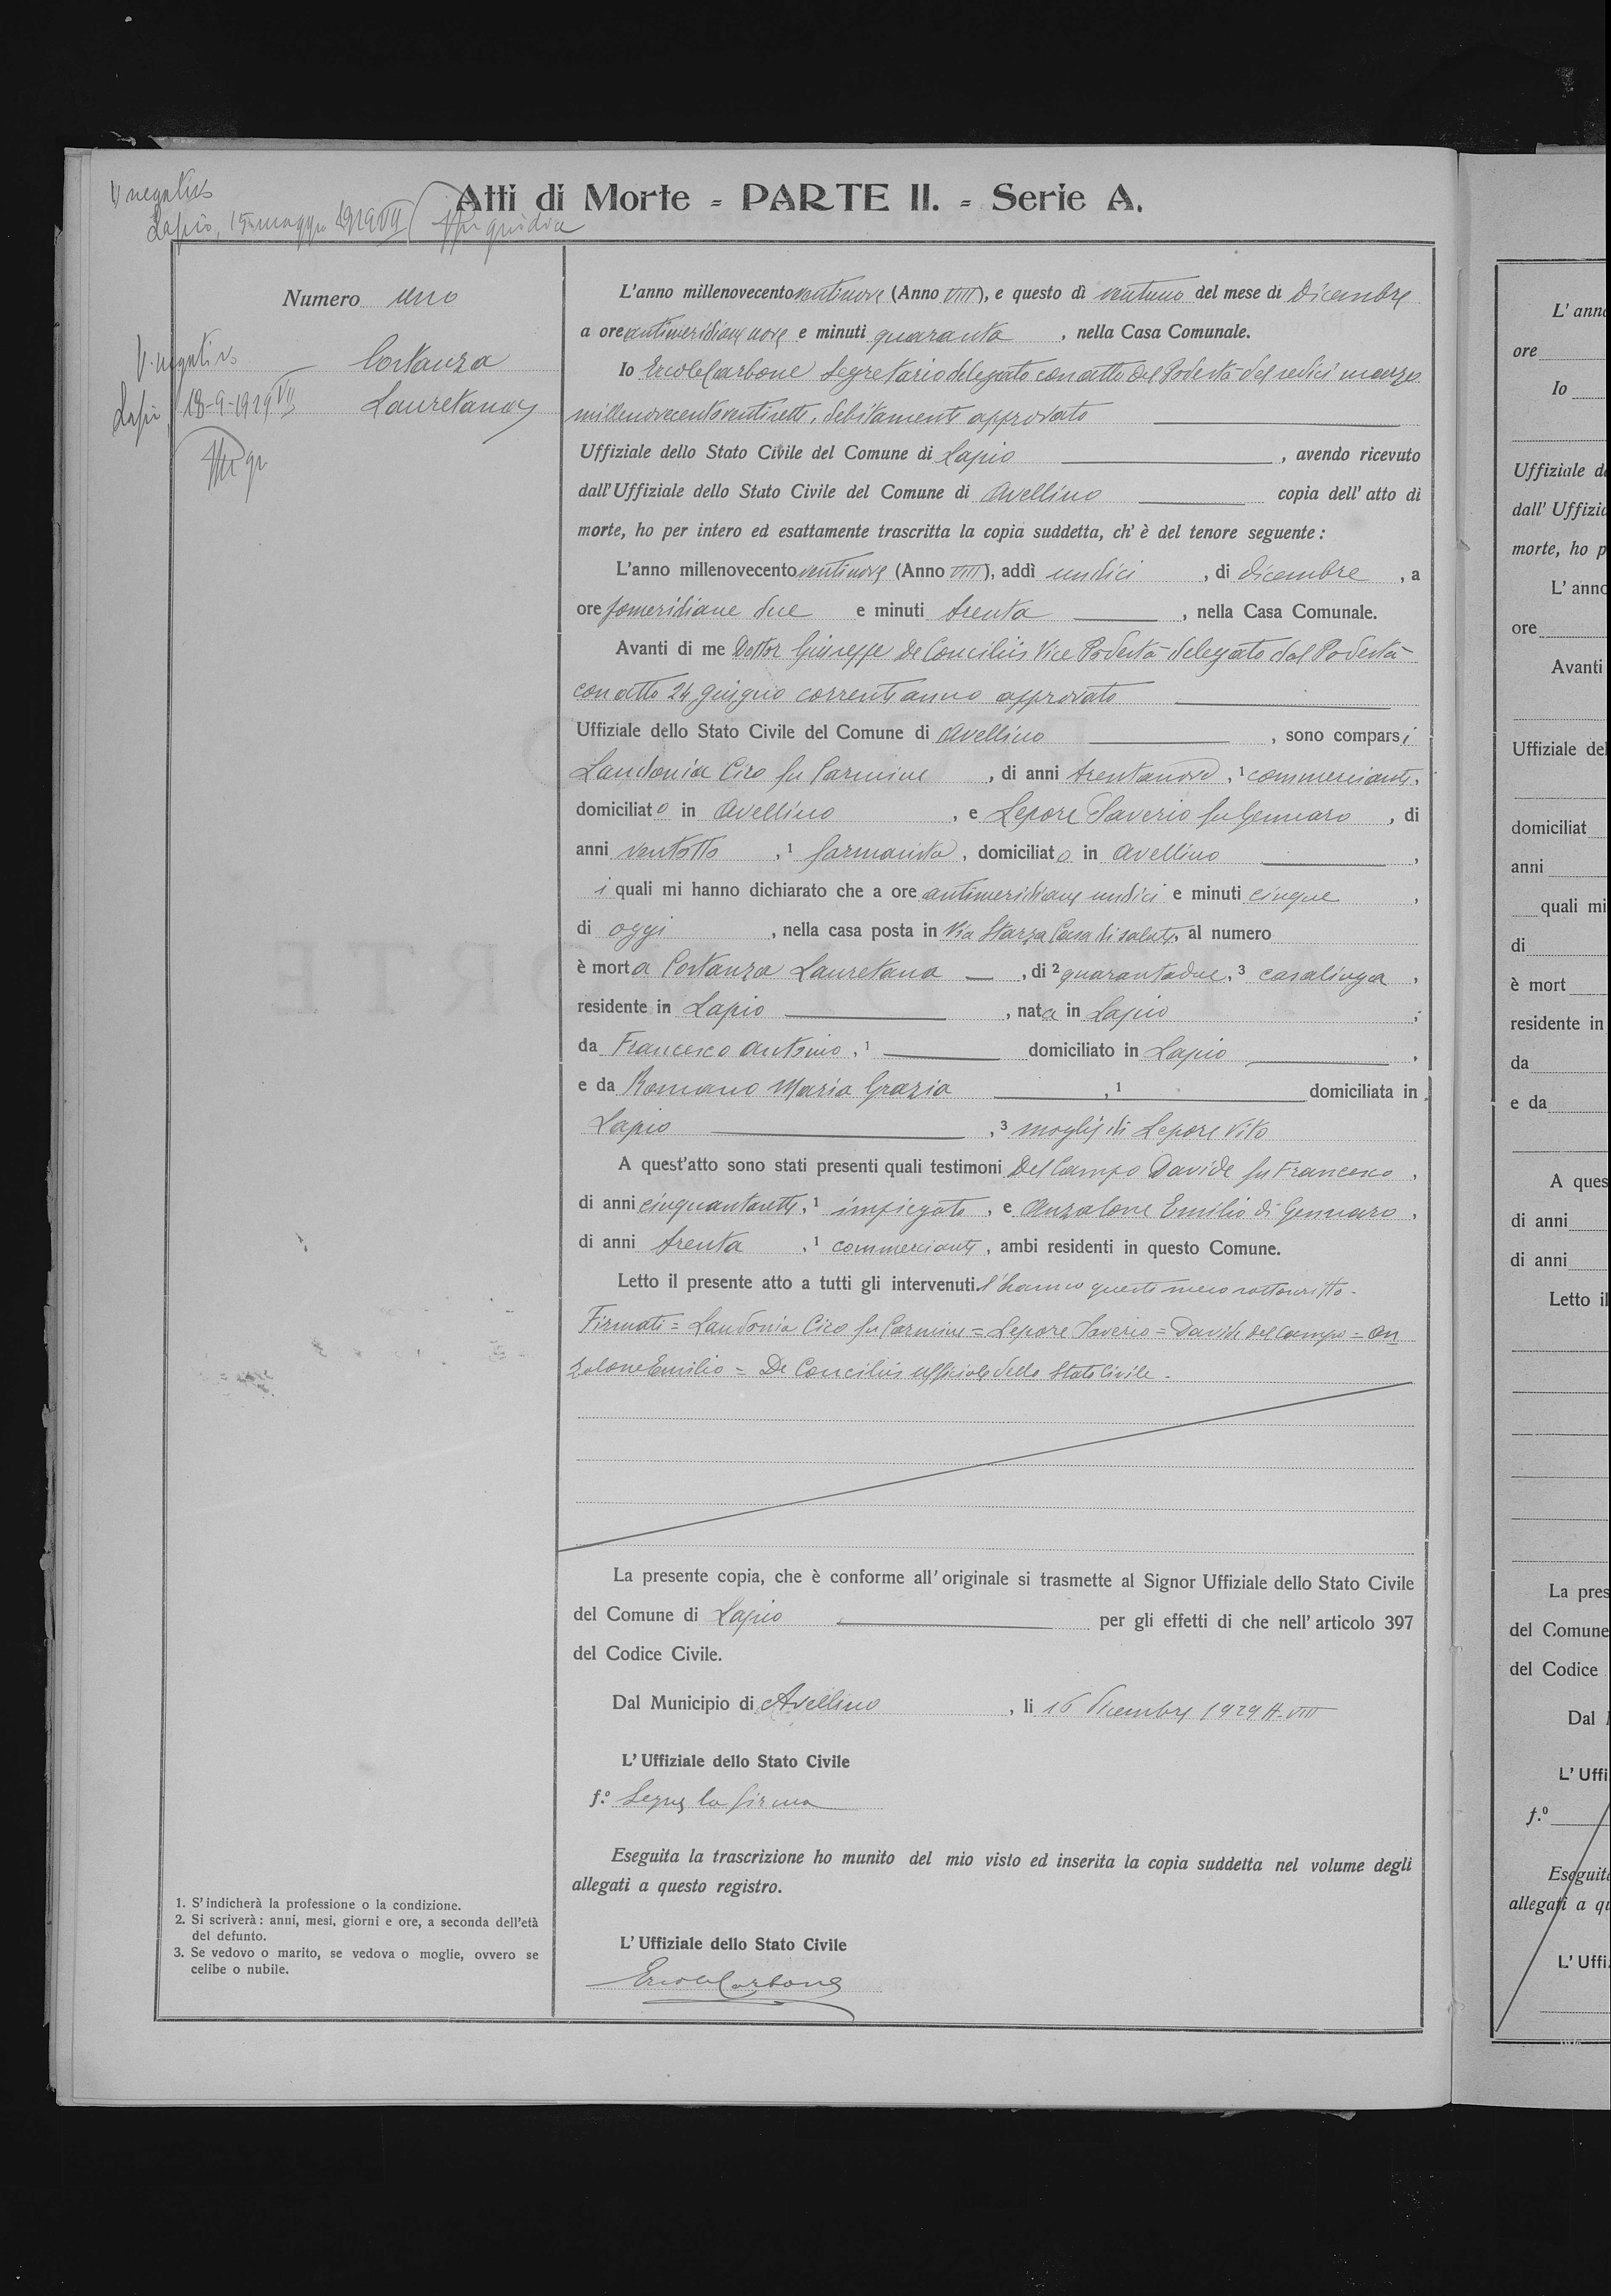 V. negativo
Lapio, 15 maggio 1929 VII
Atti di Morte - PARTE II. - Serie A.
Numero uno
V. negativo
Lapio, 18-9-1929 VII
Costanza
Lauretana
L'anno millenovecentoventinove (Anno VIII), e questo dì ventuno del mese di Dicembre
a ore antimeridiane nove e minuti quaranta, nella Casa Comunale.
Io Ercole Carbone Segretario delegato con atto del Podestà del sedici marzo
millenovecentoventisette, debitamente approvato
Uffiziale dello Stato Civile del Comune di Lapio, avendo ricevuto
dall'Uffiziale dello Stato Civile del Comune di Avellino copia dell'atto di
morte, ho per intero ed esattamente trascritta la copia suddetta, ch'è del tenore seguente:
L'anno millenovecentoventinove (Anno VIII), addì undici, di dicembre, a
ore pomeridiane due e minuti trenta, nella Casa Comunale.
Avanti di me Dottor Giuseppe De Conciliis Vice Podestà delegato dal Podestà
con atto 24 giugno corrente anno approvato
Uffiziale dello Stato Civile del Comune di Avellino, sono comparsi
Landonia Ciro fu Carmine, di anni trentanove, 1 commerciante,
domiciliato in Avellino, e Lepore Saverio fu Gennaro, di
anni ventotto, 1 farmacista, domiciliato in Avellino,
i quali mi hanno dichiarato che a ore antimeridiane undici e minuti cinque,
di oggi, nella casa posta in Via Starza Casa di salute, al numero
è morta Costanza Lauretana, di 2 quarantadue, 3 casalinga,
residente in Lapio, nata in Lapio,
da Francesco Antonio, 1 domiciliato in Lapio,
e da Romano Maria Grazia, 1 domiciliata in
Lapio, 3 moglie di Lepore Vito
A quest'atto sono stati presenti quali testimoni Del Campo Davide fu Francesco,
di anni cinquantasette, 1 impiegato, e Anzalone Emilio di Gennaro,
di anni trenta, 1 commerciante, ambi residenti in questo Comune.
Letto il presente atto a tutti gli intervenuti l'hanno questi meco sottoscritto.
Firmati = Landonia Ciro fu Carmine = Lepore Saverio = Davide Del Campo = An
zalone Emilio = De Conciliis ufficiale dello Stato Civile.
La presente copia, che è conforme all'originale si trasmette al Signor Uffiziale dello Stato Civile
del Comune di Lapio per gli effetti di che nell'articolo 397
del Codice Civile.
Dal Municipio di Avellino, li 16 Dicembre 1929 A. VIII
L'Uffiziale dello Stato Civile
f.º Segue la firma
Eseguita la trascrizione ho munito del mio visto ed inserita la copia suddetta nel volume degli
allegati a questo registro.
L'Uffiziale dello Stato Civile
Ercole Carbone
1. S'indicherà la professione o la condizione.
2. Si scriverà: anni, mesi, giorni e ore, a seconda dell'età
del defunto.
3. Se vedovo o marito, se vedova o moglie, ovvero se
celibe o nubile.
L'anno
ore
Io
Uffiziale d
dall'Uffizia
morte, ho p
L'anno
ore
Avanti
Uffiziale del
domiciliat
anni
quali mi
di
è mort
residente in
da
e da
A ques
di anni
di anni
Letto il
La pres
del Comune
del Codice
Dal
L'Uffi
f.º
Eseguita
allegati a qu
L'Uffi